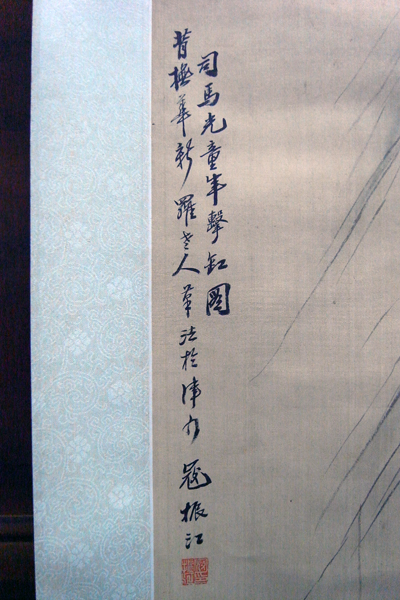 司馬光童年擊缸圖
背撫華新羅老人筆法於津門 寇振江